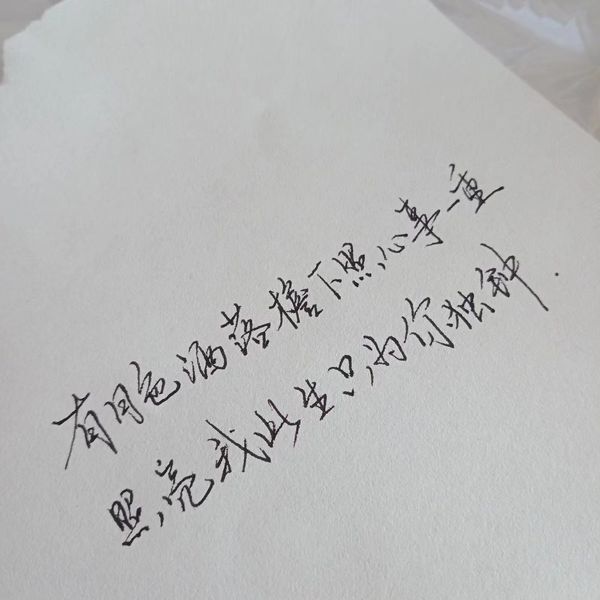 有月色洒落檐下照心事一重
照亮我此生只为你独钟.